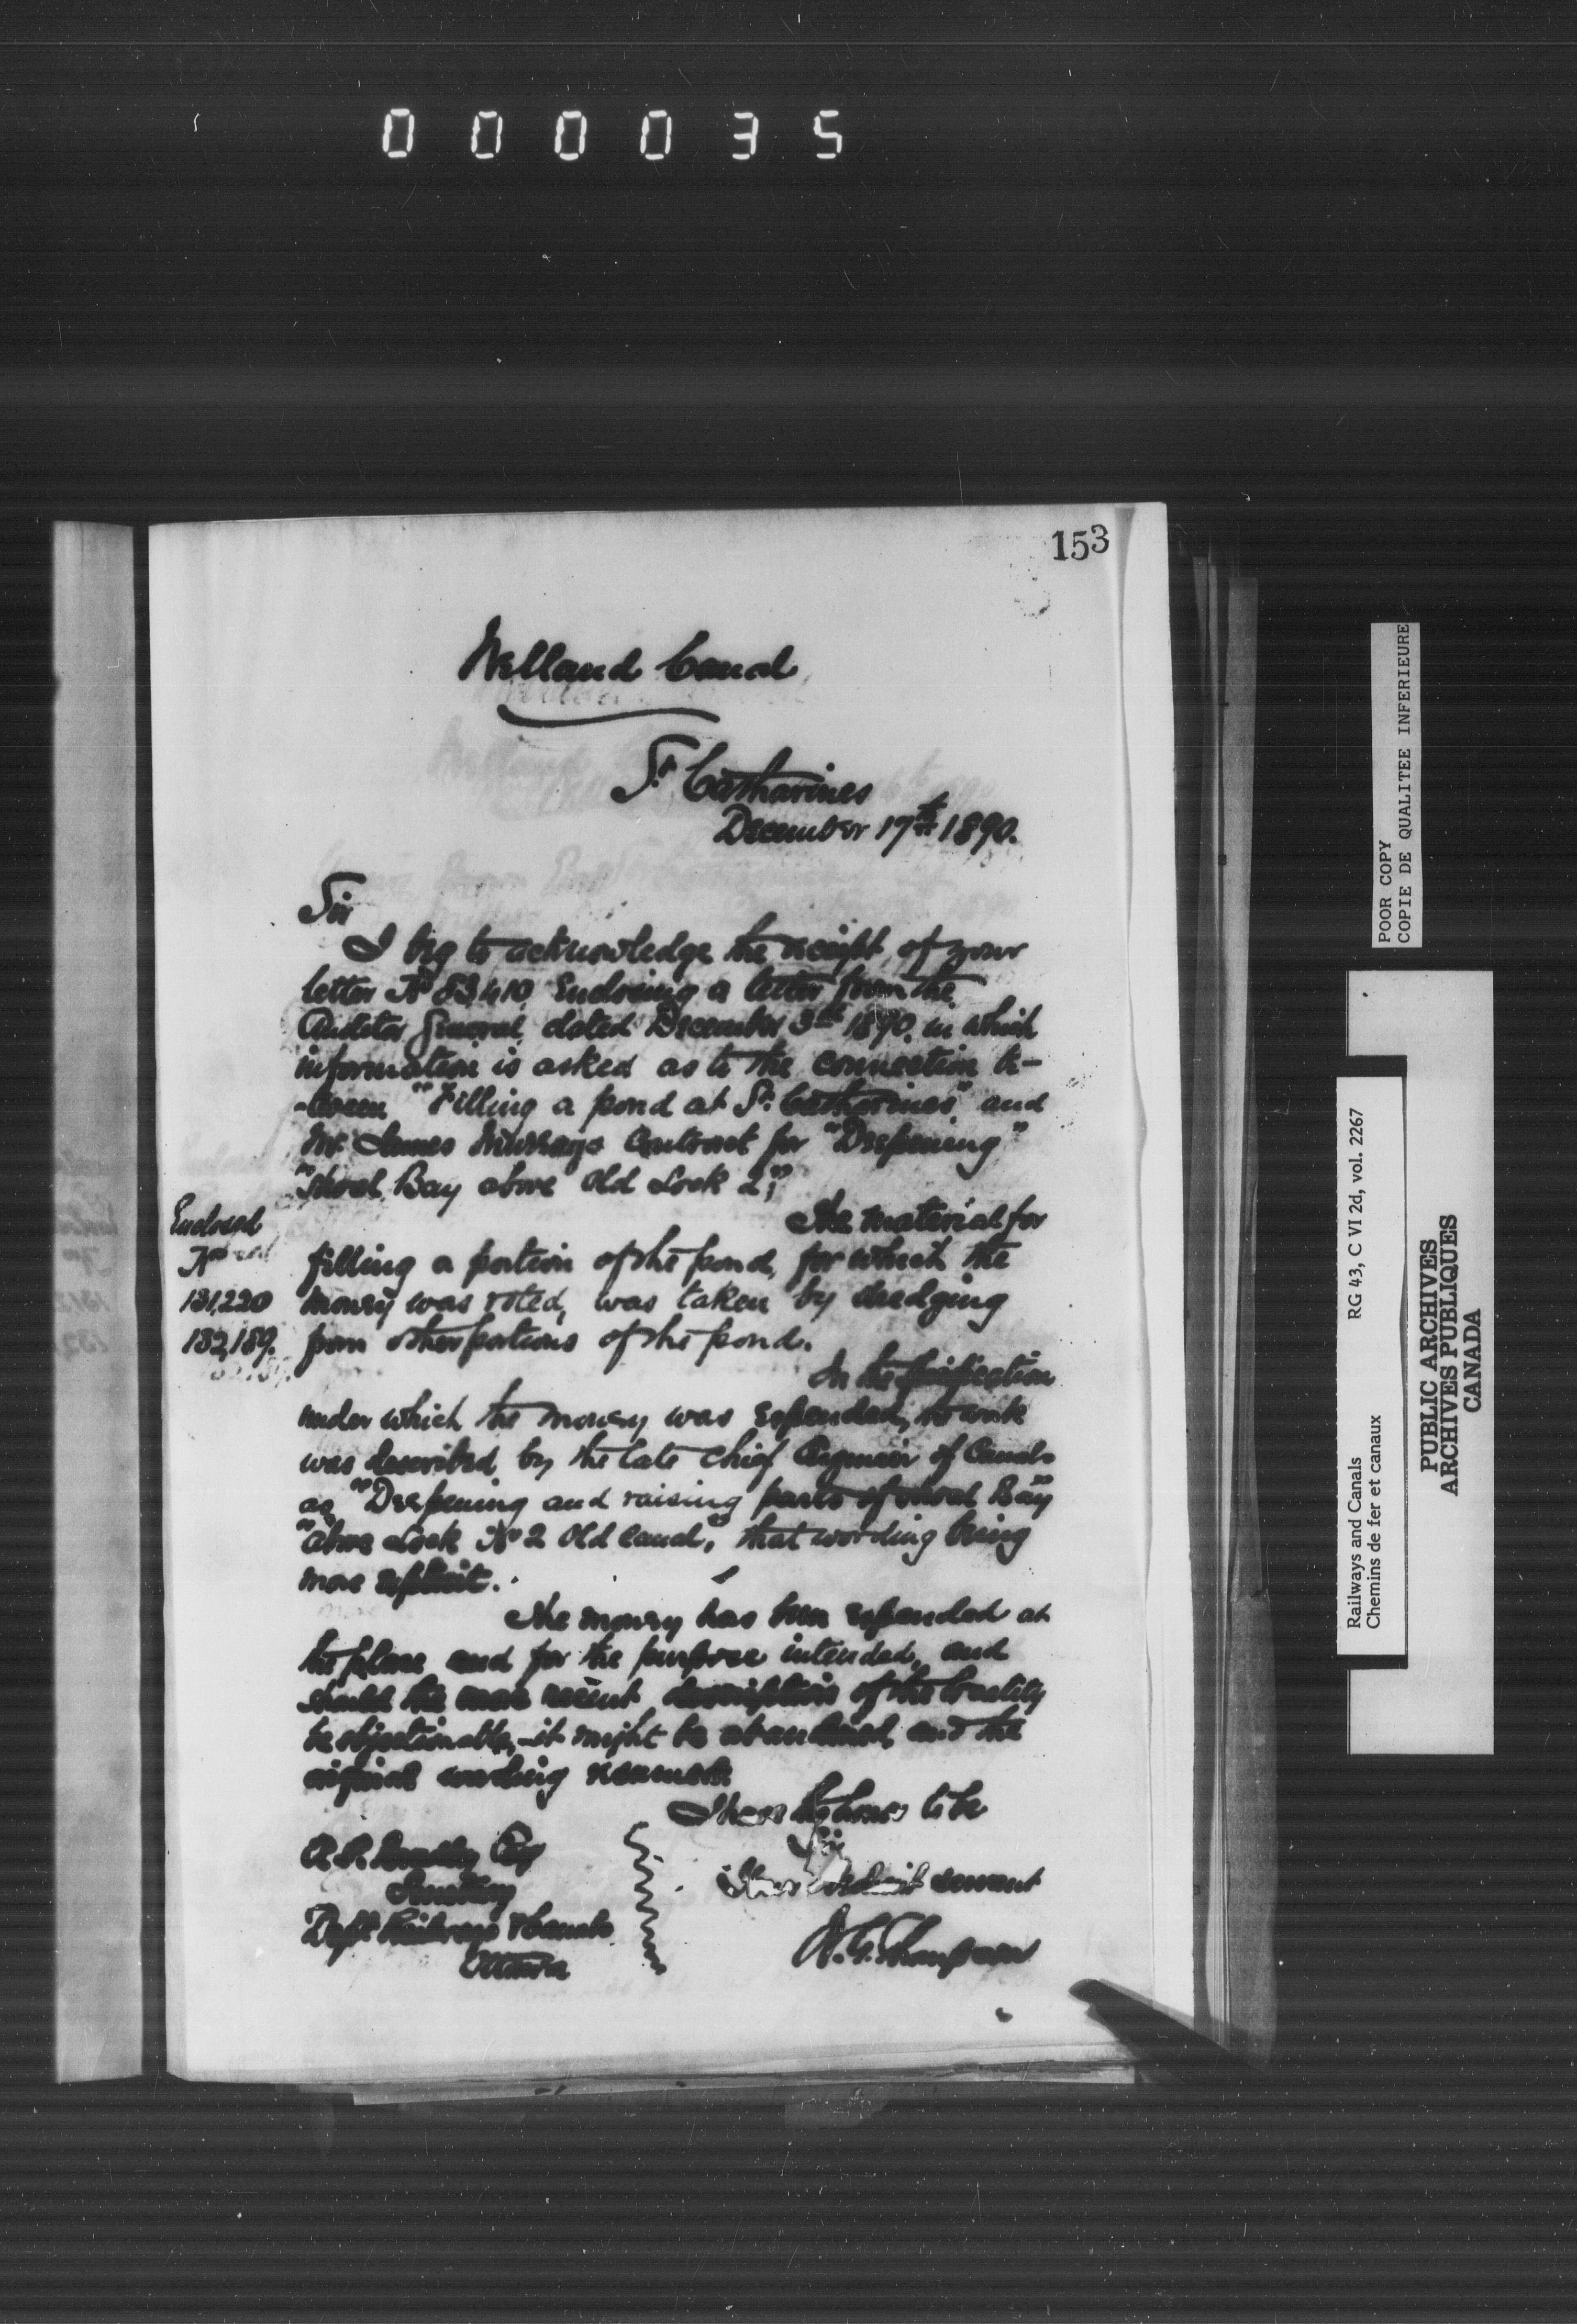 000035
153
Welland Canal
St Catharines
December 17th 1890.
Sir
I beg to acknowledge the receipt of your
letter No 83,410, Enclosing a letter from the
Auditor General, dated December 3rd 1890, in which
information is asked as to the connection be-
-tween "Filling a pond at St. Catharines" and
Mr. James Murrays Contract for "Deepening"
"Shoal Bay above Old Lock 2,"
The material for
filling a portion of the pond, for which the
money was voted, was taken by dredging
from other portions of the pond.
Enclosed
Nos
131,220
132,159.
In the Specification
under which the money was expended, the work
was described by the late Chief Engineer of Canals
as "Deepening and raising parts of Shoal Bay"
"above Lock No 2 Old Canal", that wording being
more explicit.
The money has been expended at
the place and for the purpose intended, and
should the more recent description of the locality
be objectionable, it might be abandoned, and the
original wording resumed.
I have the honor to be
Sir
Your obedient servant
W. G. Thompson
A. P. Bradley Esq
Secretary
Dept. Railways & Canals
Ottawa
POOR COPY
COPIE DE QUALITEE INFERIEURE
Railways and Canals
Chemins de fer et canaux
RG 43, C VI 2d, vol. 2267
PUBLIC ARCHIVES
ARCHIVES PUBLIQUES
CANADA